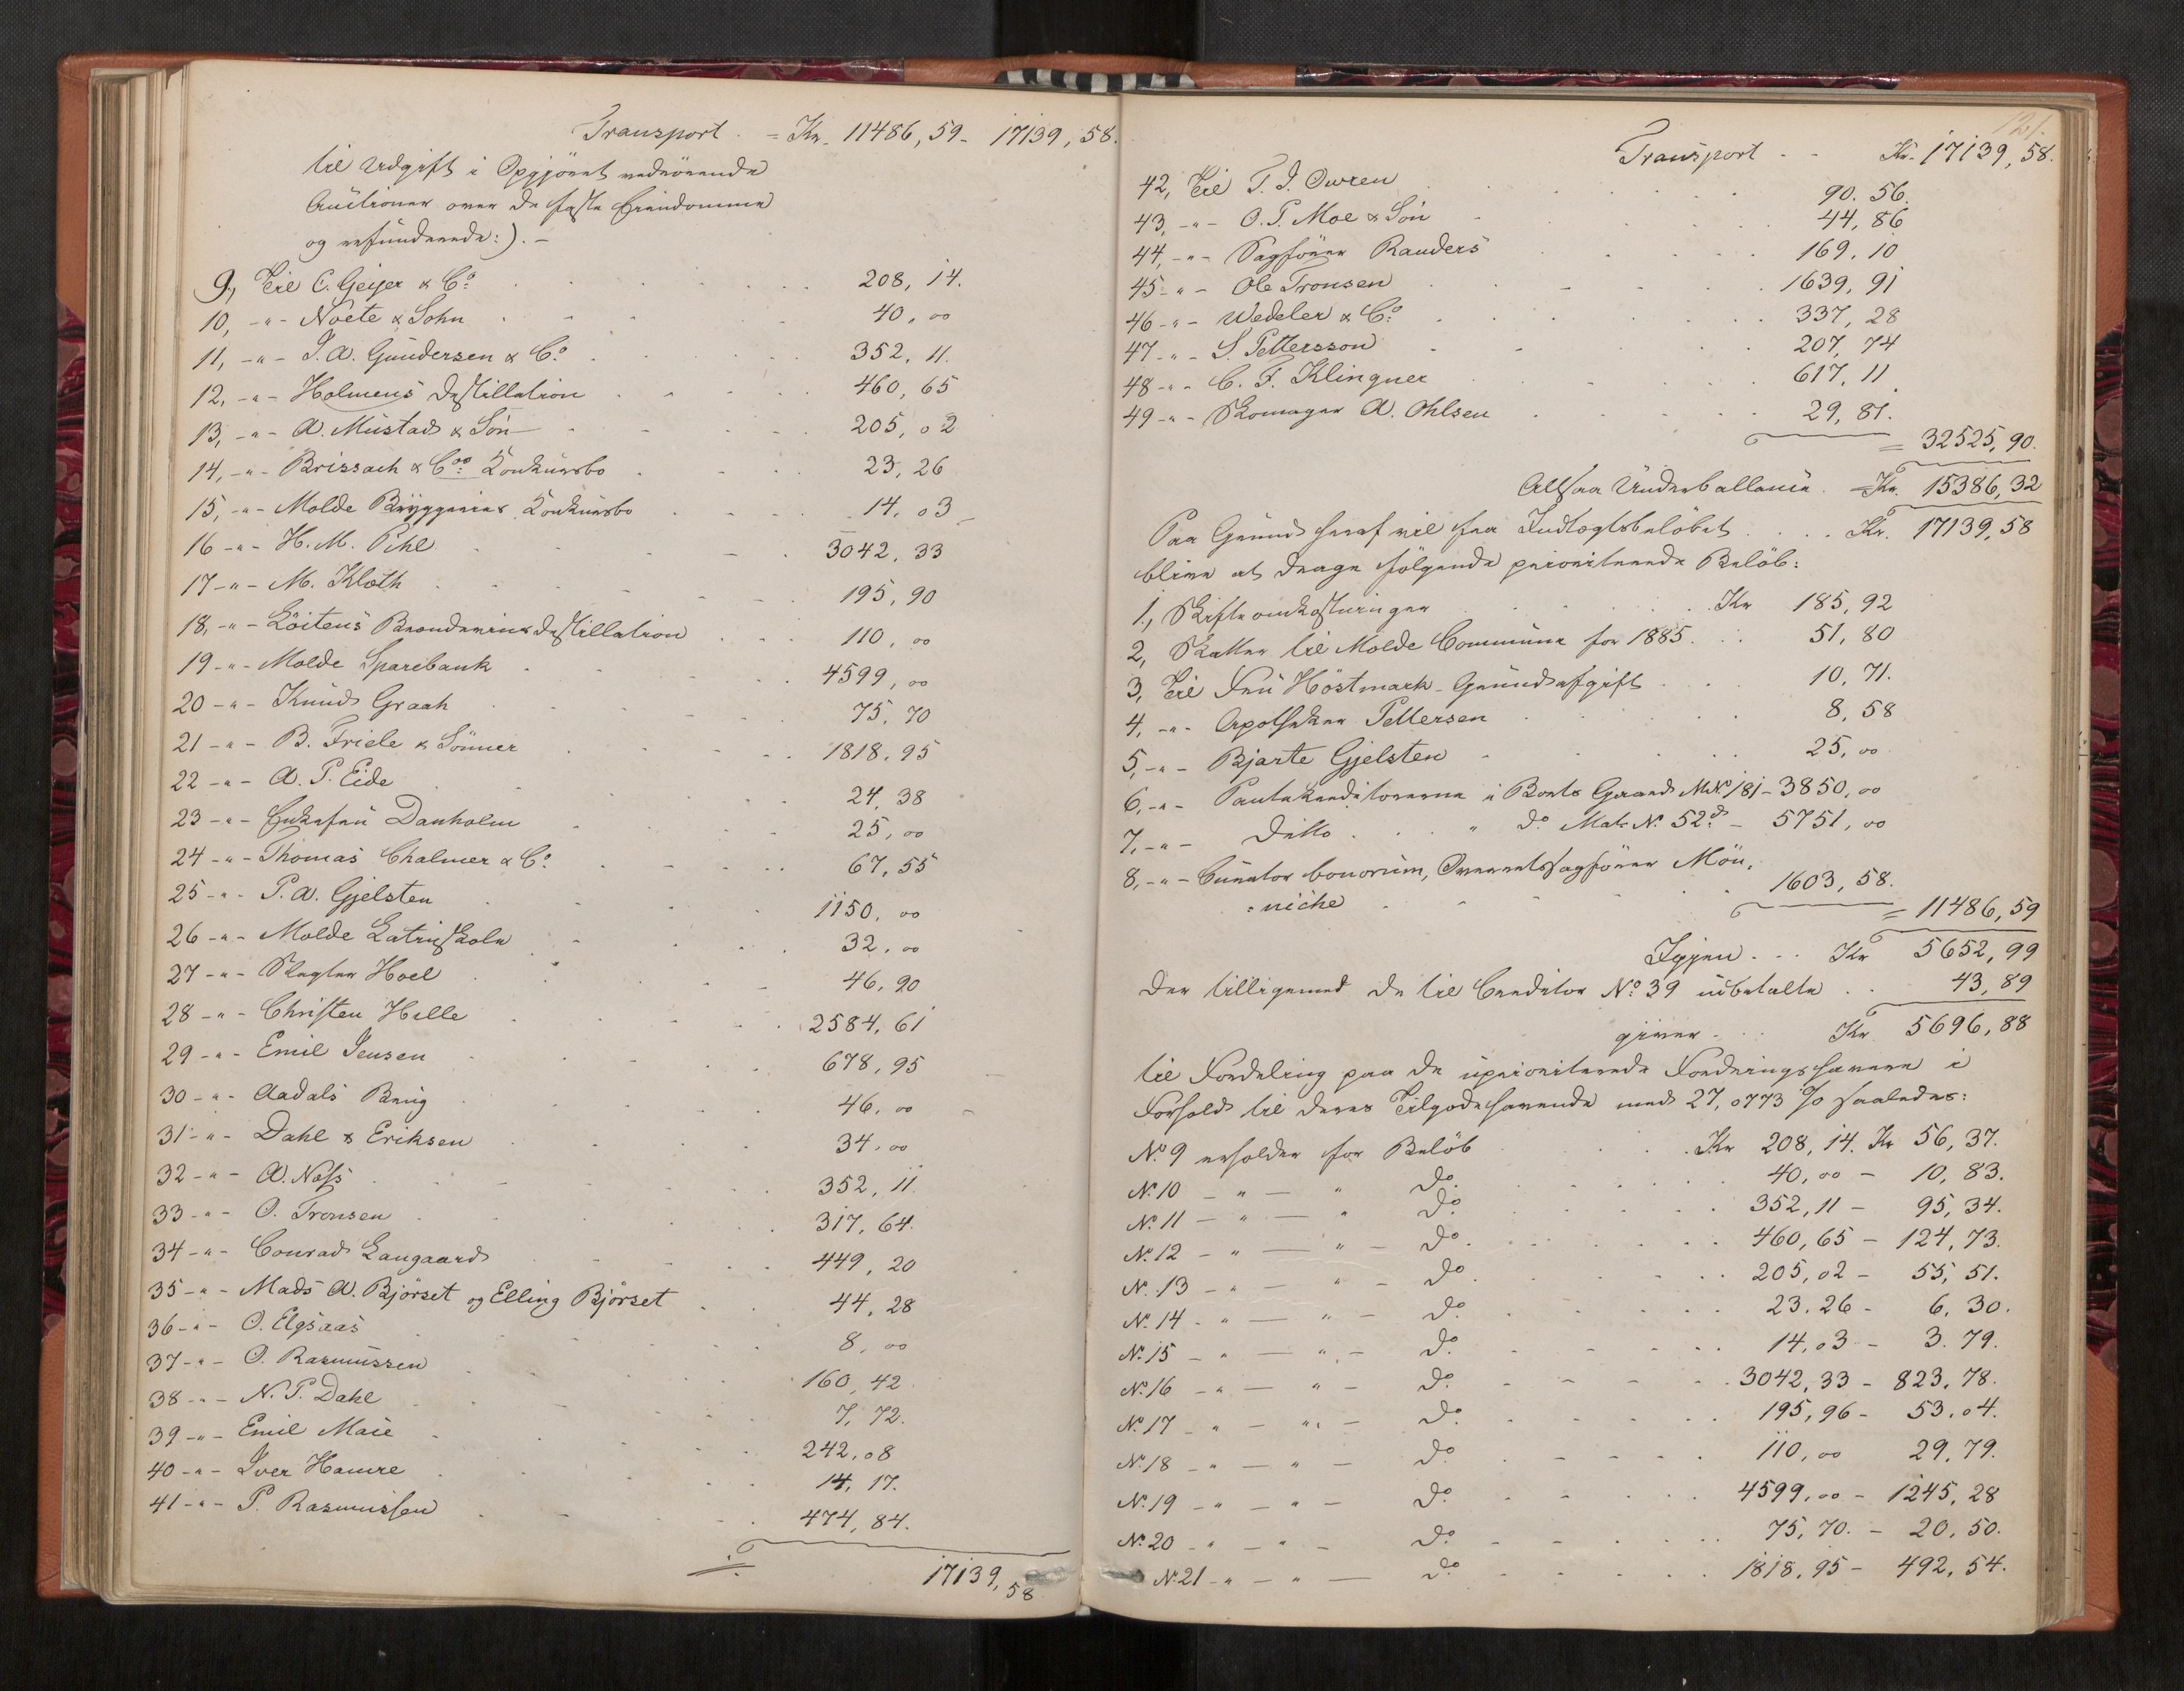 Transport . = Kr. 11486,59 - 17139,58.
til Udgift i Opgjøret vedrørende
Auctioner over de faste Eiendomme
og refunderede:). -
9, Til C. Geijer & Co. 208,14.
10, -"- Noete & Sohn 40,00
11, -"- J. A. Gundersen & Co. 352,11.
12, -"- Holmens Destillation 460,65
13, -"- A. Mustad & Sön 205,02
14, -"- Brissach & Coo. Konkursbo 23,26
15, -"- Molde Bryggeries Konkursbo 14,03
16 -"- H. M. Pihl 3042,33
17 -"- M. Kloth 195,90
18, -"- Löitens Brænderies Destillation 110,00
19 -"- Molde Sparebank 4599,00
20 -"- Knud Graah 75,70
21 -"- B. Friele & Sönner 1818,95
22 -"- A. P. Eide 24,38
23 -"- Enkefru Danholm 25,00
24 -"- Thomas Chalmer & Co. 67,55
25 -"- P. A. Gjelsten 1150,00
26 -"- Molde Latinskole 32,00
27 -"- Slagter Hoel 46,90
28 -"- Christen Helle 2584,61
29 -"- Emil Jensen 678,95
30 -"- Aadals Brug 46,00
31 -"- Dahl & Eriksen 34,00
32 -"- A. Næss 352,11.
33 -"- O. Tronsen 317,64.
34 -"- Conrad Langaard 449,20
35 -"- Mads A. Björset og Elling Björset 44,28
36 -"- O. Elgsaas 8,00
37 -"- O. Rasmussen 160,42
38 -"- N. P. Dahl 7,72.
39 -"- Emil Maie 242,08
40 -"- Iver Hamre 14,17.
41 -"- P. Rasmussen 474,84.
17139,58
121.
Transport - - Kr. 17139,58.
42, Til T. J. Owren 90.56.
43, -"- O. P. Moe & Sön 44,86
44, -"- Sagförer Randers 169,10
45 -"- Ole Tronsen 1639,91
46 -"- Wedeler & Co. 337,28
47 -"- S. Pettersson 207,74
48 -"- C. F. Klingner 617,11
49 -"- Skomager A. Ohlsen 29,81.
= 32525,90.
Altsaa Underballance. = Kr. 15386,32
Paa Grund heraf vil fra Indtægtsbelöbet . . . . Kr. 17139,58
blive at drage fölgende prioriterede Belöb:
1, Skifteomkostninger Kr 185,92
2, Skatter til Molde Commune for 1885 51,80
3, Til Fru Höstmark - Grundafgift 10,71.
4, -"- Apotheker Pettersen 8,58
5, -"- Bjarte Gjelsten 25,00
6, -"- Pantekreditorerne i Boets Gaard M.No 181 - 3850,00
7, -"- Ditto . . . " do Mat. No. 52d - 5751,00
8, -"- Curator bonorum, Overretssagförer Mön,
=niche 1603,58.
= 11486,59
Igjen . . . Kr 5652,99
Der tilligemed de til Creditor No. 39 udbetalte . . 43,89
giver - . . Kr 5696,88
til Fordeling paa de uprioriterede Fordringshavere i
Forhold til deres Tilgodehavende med 27,0773 % saaledes:
No. 9 erholder for Belöb Kr 208,14. Kr 56,37.
No. 10 - " - " do. 40,00 - 10,83.
No. 11 - " - " do. 352,11 - 95,34.
No. 12 - " - " - do. 460,65 - 124,73.
No. 13 - " - " - do. 205,02 - 55,51.
No. 14 - " - " - do. 23.26 - 6,30.
No. 15 - " - " - do. 14,03 - 3.79.
No. 16 - " - " - do. 3042,33 - 823,78.
No. 17 - " - " - do. 195,96 - 53.04.
No. 18 - " - " - do. 110,00 29,79.
No. 19 - " - " - do. 4599,00 - 1245,28
No. 20 - " - " - do. 75,70. - 20,50.
No. 21 - " - " - do. 1818,95 - 492,54.